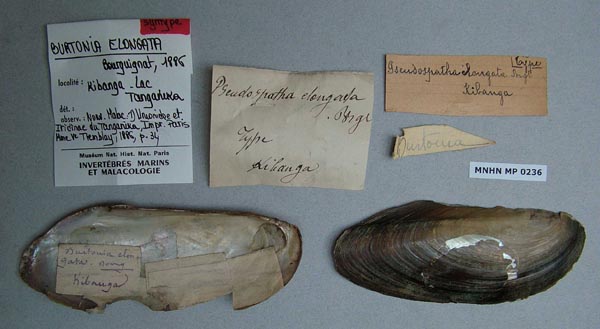 syntype
BURTONIA ELONGATA
Bourguignat, 1886
localité: Kibanga - Lac
Tanganika
dét.:
observ.: Nouv. Unionidae et
Iridinae du Tanganika, Impr. Paris
Tremblay, 1886, p. 34
Muséum Nat. Hist. Nat. Paris
INVERTÉBRÉS MARINS
ET MALACOLOGIE
Pseudospatha elongata
Brgt
Type
Kibanga
Type
Pseudospatha elongata
Kibanga
Burtonia
MNHN MP 0236
Burtonia elon
gata. Bourg
Kibanga